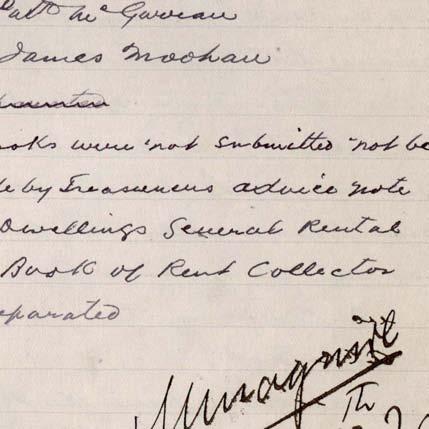 Patk McGarean
James Moohan
ooks were not submitted not be
de by Treasurers advice note
Dwellings General Rental
Book of Rent Collector
eparated
Th